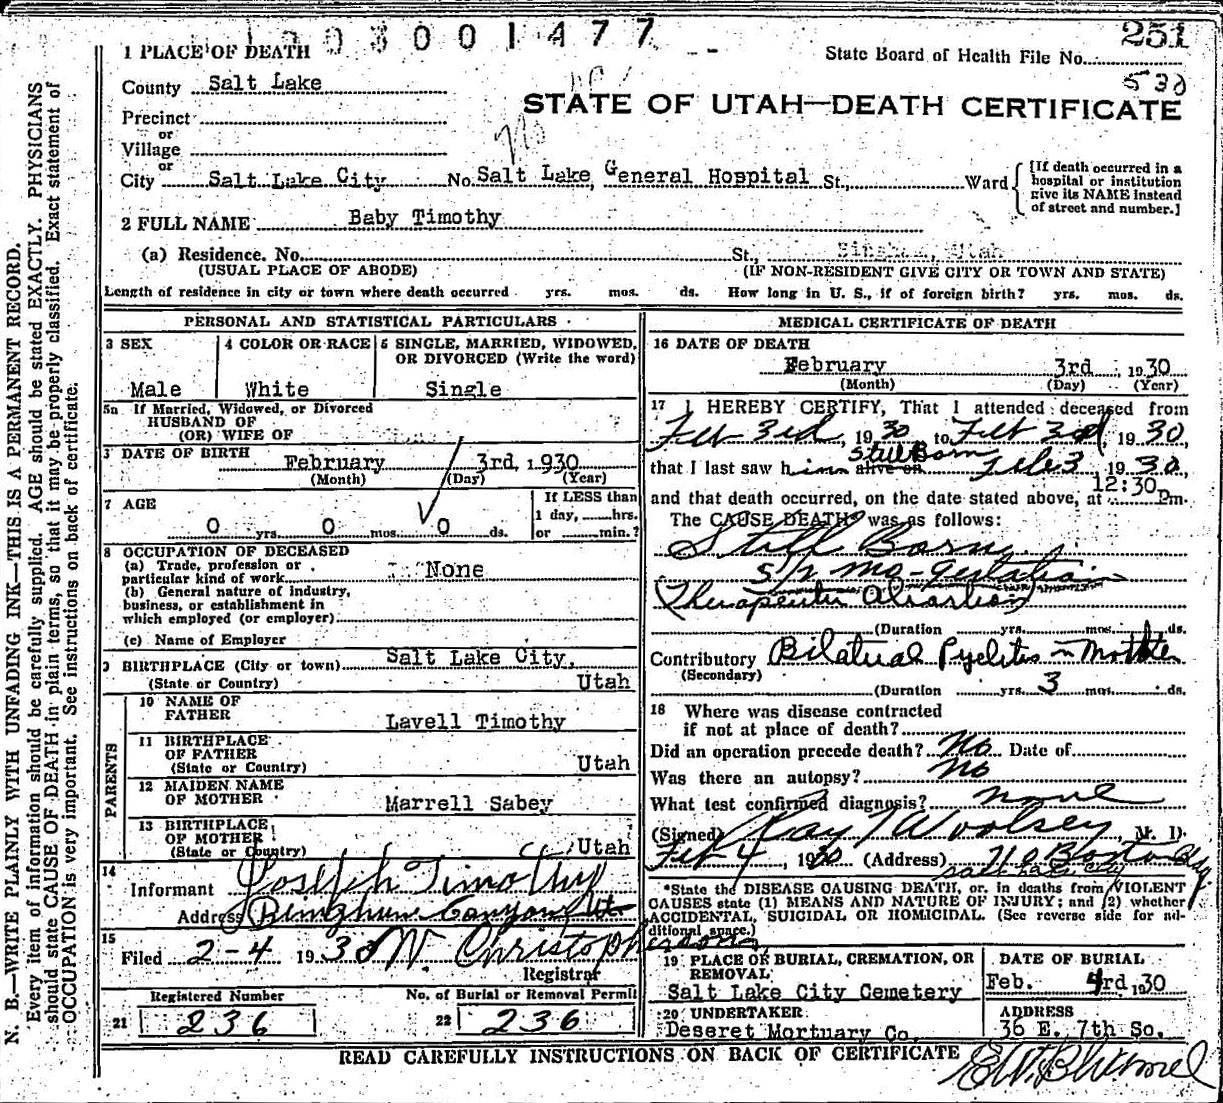 1003001477
251
State Board of Health File No.
530
1 PLACE OF DEATH
County Salt Lake
STATE OF UTAH—DEATH CERTIFICATE
Precinct
or
Village
or
City Salt Lake City No. Salt Lake General Hospital St., Ward
[If death occurred in a
hospital or institution
give its NAME instead
of street and number.]
2 FULL NAME Baby Timothy
(a) Residence. No. St., Bingham, Utah
(USUAL PLACE OF ABODE) (IF NON-RESIDENT GIVE CITY OR TOWN AND STATE)
Length of residence in city or town where death occurred yrs. mos. ds. How long in U. S., if of foreign birth? yrs. mos. ds.
PERSONAL AND STATISTICAL PARTICULARS
3 SEX
Male
4 COLOR OR RACE
White
5 SINGLE, MARRIED, WIDOWED,
OR DIVORCED (Write the word)
Single
5a If Married, Widowed, or Divorced
HUSBAND OF
(OR) WIFE OF
DATE OF BIRTH
February 3rd, 1930
(Month) (Day) (Year)
7 AGE
0 yrs. 0 mos. 0 ds.
If LESS than
1 day, hrs.
or min.?
8 OCCUPATION OF DECEASED
(a) Trade, profession or
particular kind of work None
(b) General nature of industry,
business, or establishment in
which employed (or employer)
(c) Name of Employer
9 BIRTHPLACE (City or town) Salt Lake City,
(State or Country) Utah
PARENTS
10 NAME OF
FATHER Lavell Timothy
11 BIRTHPLACE
OF FATHER
(State or Country) Utah
12 MAIDEN NAME
OF MOTHER Marrell Sabey
13 BIRTHPLACE
OF MOTHER
(State or Country) Utah
14
Informant Joseph Timothy
Address Bingham Canyon Ut
15
Filed 2-4 1930 W. Christophersons
Registrar
Registered Number
21 236
No. of Burial or Removal Permit
22 236
MEDICAL CERTIFICATE OF DEATH
16 DATE OF DEATH
February 3rd, 1930
(Month) (Day) (Year)
17 I HEREBY CERTIFY, That I attended deceased from
Feb 3rd, 1930, to Feb 3rd, 1930,
Still Born
that I last saw him alive on Feb 3 1930,
12:30
and that death occurred, on the date stated above, at Pm.
The CAUSE DEATH was as follows:
Still Born
5½ mo-gestation
(Therapeutic Abortion)
(Duration yrs. mos. ds.
Contributory Bilateral Pyelitis in Mother
(Secondary)
(Duration yrs. 3 mos. ds.
18 Where was disease contracted
if not at place of death?
Did an operation precede death? No Date of
Was there an autopsy? No
What test confirmed diagnosis? none
(Signed) Ray T Woolsey M. D.
Feb 4, 1930 (Address) 710 Boston Bldg.
Salt Lake City
*State the DISEASE CAUSING DEATH, or, in deaths from VIOLENT
CAUSES state (1) MEANS AND NATURE OF INJURY; and (2) whether
ACCIDENTAL, SUICIDAL OR HOMICIDAL. (See reverse side for ad-
ditional space.)
19 PLACE OF BURIAL, CREMATION, OR
REMOVAL
Salt Lake City Cemetery
DATE OF BURIAL
Feb. 4rd 1930
20 UNDERTAKER
Deseret Mortuary Co.
ADDRESS
36 E. 7th So.
READ CAREFULLY INSTRUCTIONS ON BACK OF CERTIFICATE
N. B.—WRITE PLAINLY WITH UNFADING INK—THIS IS A PERMANENT RECORD.
Every item of information should be carefully supplied. AGE should be stated EXACTLY. PHYSICIANS
should state CAUSE OF DEATH in plain terms, so that it may be properly classified. Exact statement of
OCCUPATION is very important. See instructions on back of certificate.